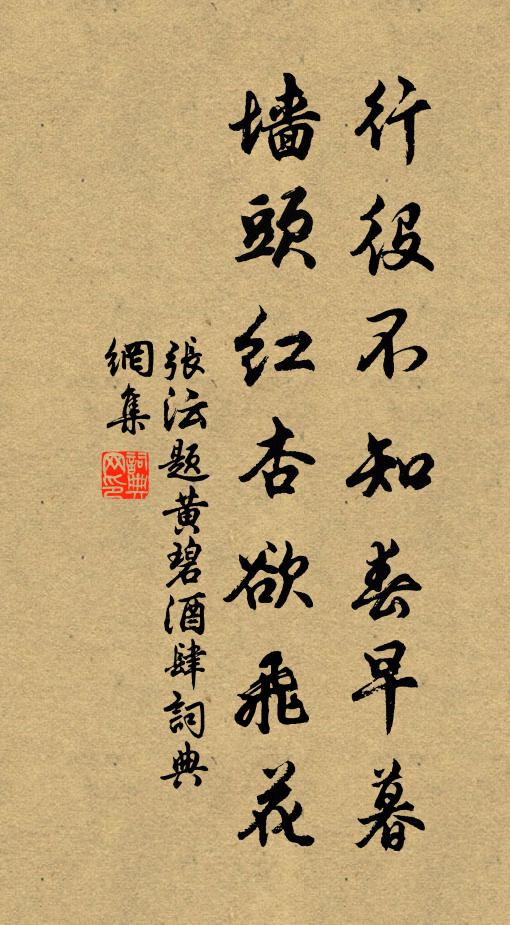 行役不知春早暮
墻頭紅杏欲飛花
張沄題黄碧酒肆詞典
網集
詞典網印